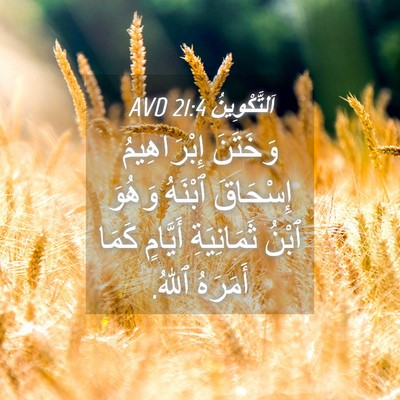 اَلتَّكْوِينُ 21:4 AVD
وَخَتَنَ إِبْرَاهِيمُ
إِسْحَاقَ ٱبْنَهُ وَهُوَ
ٱبْنُ ثَمَانِيَةِ أَيَّامٍ كَمَا
أَمَرَهُ ٱللهُ.